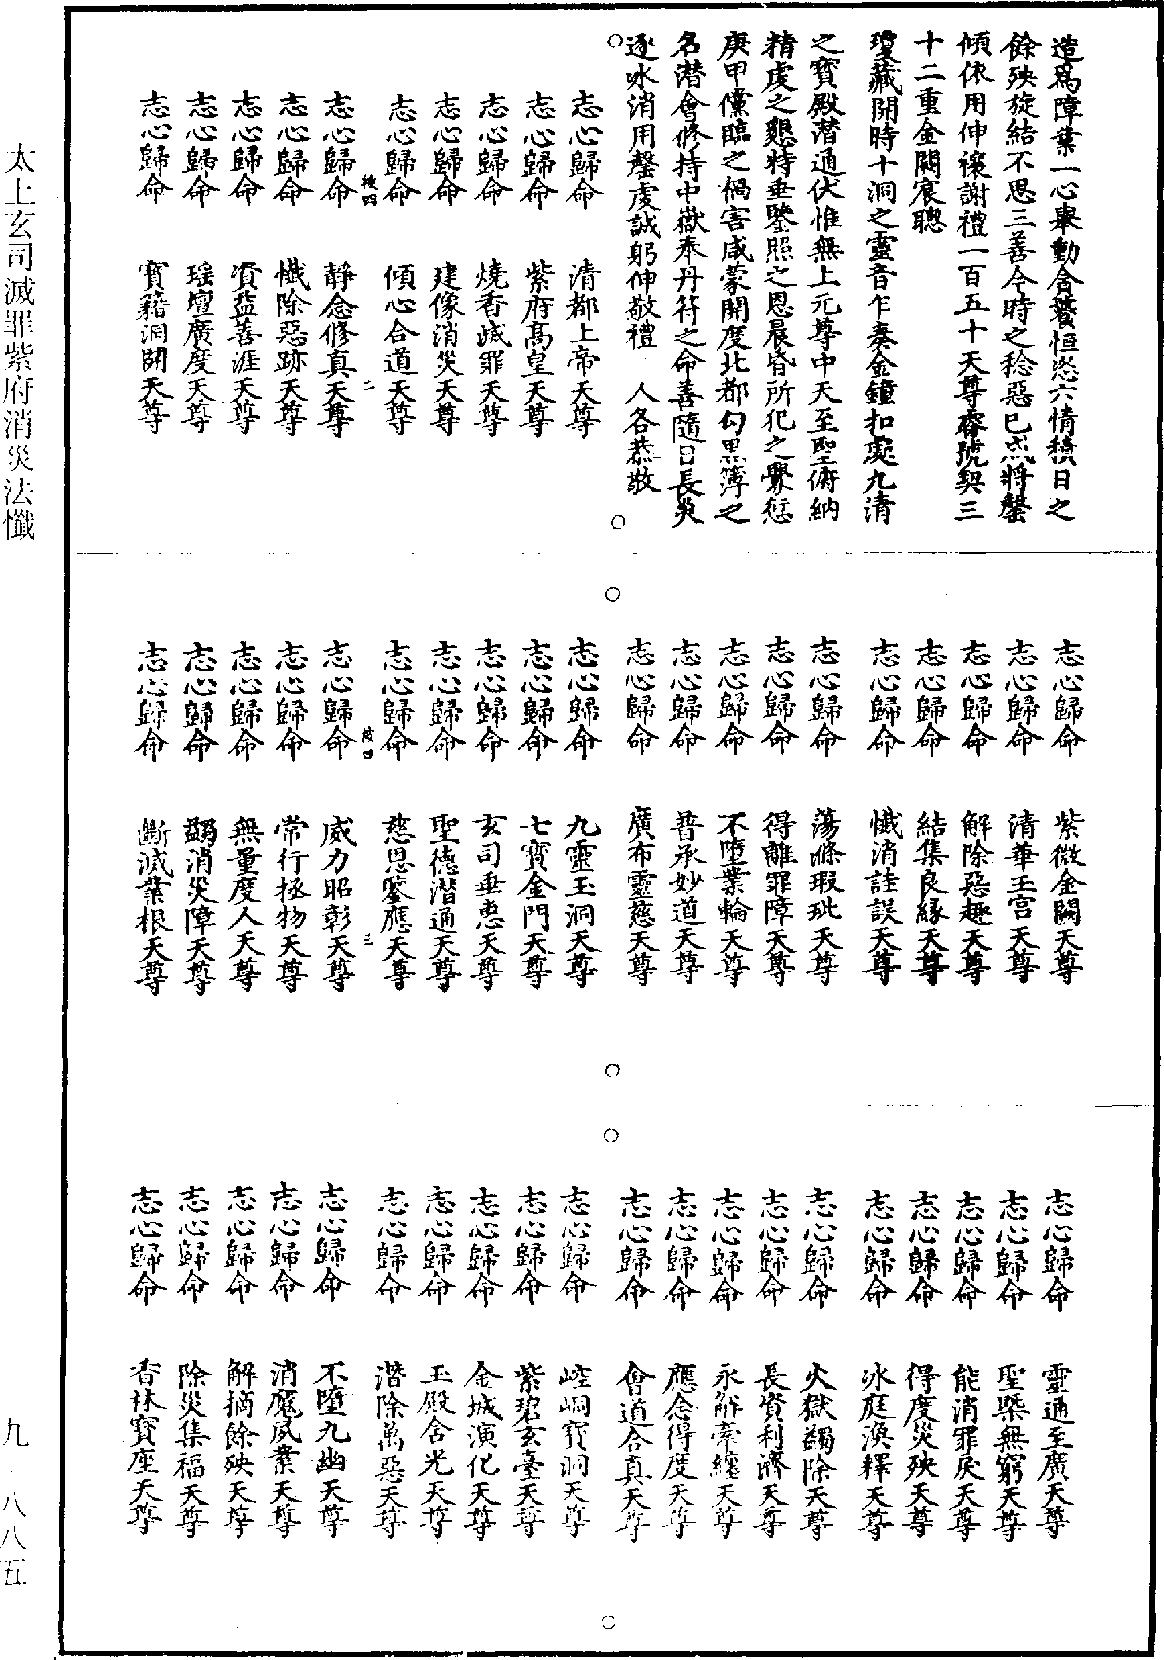 造爲障業一心舉動含養恒恣六情積日之
餘殃旋結不思三善今時之稔惡已成將罄
傾依用伸禳謝禮一百五十天尊睿號契三
十二重金闕宸聰
瓊藏開時十洞之靈音乍奏金鐘扣處九清
之寶殿潜通伏惟無上元尊中天至聖俯納
精虔之懇特垂鑒照之恩晨昏所犯之釁愆
庚甲儻臨之禍害咸蒙開度北都勾黑簿之
名潜會修持中嶽奉丹符之命善隨日長災
逐冰消用罄虔誠躬伸敬禮 人各恭敬
志心歸命 清都上帝天尊
志心歸命 紫府高皇天尊
志心歸命 燒香滅罪天尊
志心歸命 建像消災天尊
志心歸命 傾心合道天尊
二
志心歸命 靜念修真天尊
志心歸命 懺除惡跡天尊
志心歸命 資益善涯天尊
志心歸命 瑶壇廣度天尊
志心歸命 寶籍洞開天尊
志心歸命 紫微金闕天尊
志心歸命 清華玉宮天尊
志心歸命 解除惡趣天尊
志心歸命 結集良緣天尊
志心歸命 懺消詿誤天尊
志心歸命 蕩滌瑕玼天尊
志心歸命 得離罪障天尊
志心歸命 不墮業輪天尊
志心歸命 普承妙道天尊
志心歸命 廣布靈慈天尊
志心歸命 九靈玉洞天尊
志心歸命 七寶金門天尊
志心歸命 玄司垂惠天尊
志心歸命 聖德潜通天尊
志心歸命 慈思鑒應天尊
三
志心歸命 威力昭彰天尊
志心歸命 常行拯物天尊
志心歸命 無量度人天尊
志心歸命 蠲消災障天尊
志心歸命 斷滅業根天尊
志心歸命 靈通至廣天尊
志心歸命 聖槩無窮天尊
志心歸命 能消罪戾天尊
志心歸命 得度災殃天尊
志心歸命 冰庭渙釋天尊
志心歸命 火獄蠲除天尊
志心歸命 長資利濟天尊
志心歸命 永解牽纏天尊
志心歸命 應念得度天尊
志心歸命 會道合真天尊
志心歸命 崆峒寶洞天尊
志心歸命 紫碧玄臺天尊
志心歸命 金城演化天尊
志心歸命 玉殿含光天尊
志心歸命 潜除萬惡天尊
志心歸命 不墮九幽天尊
志心歸命 消魔夙業天尊
志心歸命 解摘餘殃天尊
志心歸命 除災集福天尊
志心歸命 香林寶座天尊
太上玄司滅罪紫府消災法懺
九 八八五